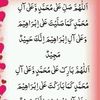 اَللّٰهُمَّ صَلِّ عَلٰى مُحَمَّدٍ وَّعَلٰٓى اٰلِ
مُحَمَّدٍ كَمَا صَلَّيْتَ عَلٰٓى اِبْرَاهِيْمَ
وَعَلٰٓى اٰلِ اِبْرَاهِيْمَ اِنَّكَ حَمِيْدٌ
مَّجِيْدٌ
اَللّٰهُمَّ بَارِكْ عَلٰى مُحَمَّدٍ وَّعَلٰٓى اٰلِ
مُحَمَّدٍ كَمَا بَارَكْتَ عَلٰٓى اِبْرَاهِيْمَ
وَعَلٰٓى اٰلِ اِبْرَاهِيْمَ اِنَّكَ حَمِيْدٌ